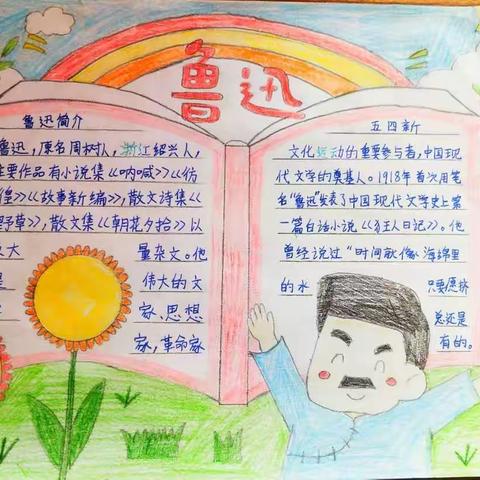 鲁迅
鲁迅简介
鲁迅,原名周树人,浙江绍兴人,
主要作品有小说集《呐喊》《彷
徨》《故事新编》,散文诗集《
野草》,散文集《朝花夕拾》以
大 量杂文。他
是 伟大的文
家、思想
家,革命家
五四新
文化运动的重要参与者,中国现
代文学的奠基人。1918年首次用笔
名“鲁迅”发表了中国现代文学史上第
一篇白话小说《狂人日记》。他
曾经说过“时间就像海绵里
的水 只要愿挤
总还是
有的。